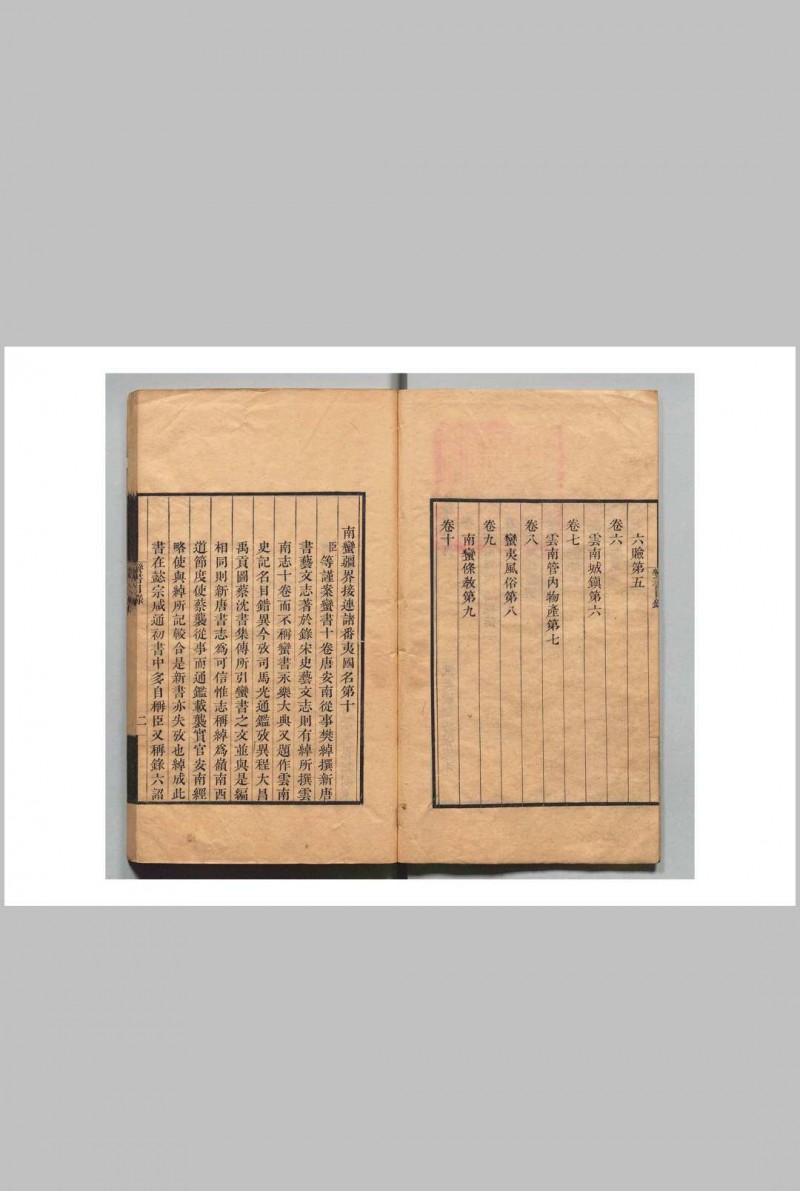 六賧第五
卷六
雲南城鎮第六
卷七
雲南管內物產第七
卷八
蠻夷風俗第八
卷九
南蠻條教第九
卷十
南蠻疆界接連諸番夷國名第十
臣等謹案蠻書十卷唐安南從事樊綽撰新唐
書藝文志著於錄宋史藝文志則有綽所撰雲
南志十卷而不稱蠻書永樂大典又題作雲南
史記名目錯異今攷司馬光通鑑攷異程大昌
禹貢圖蔡沈書集傳所引蠻書之文並與是編
相同則新唐書志為可信惟志稱綽為嶺南西
道節度使蔡襲從事而通鑑載襲實官安南經
略使與綽所記較合是新書亦失攷也綽成此
書在懿宗咸通初書中多自稱臣又稱錄六詔
二